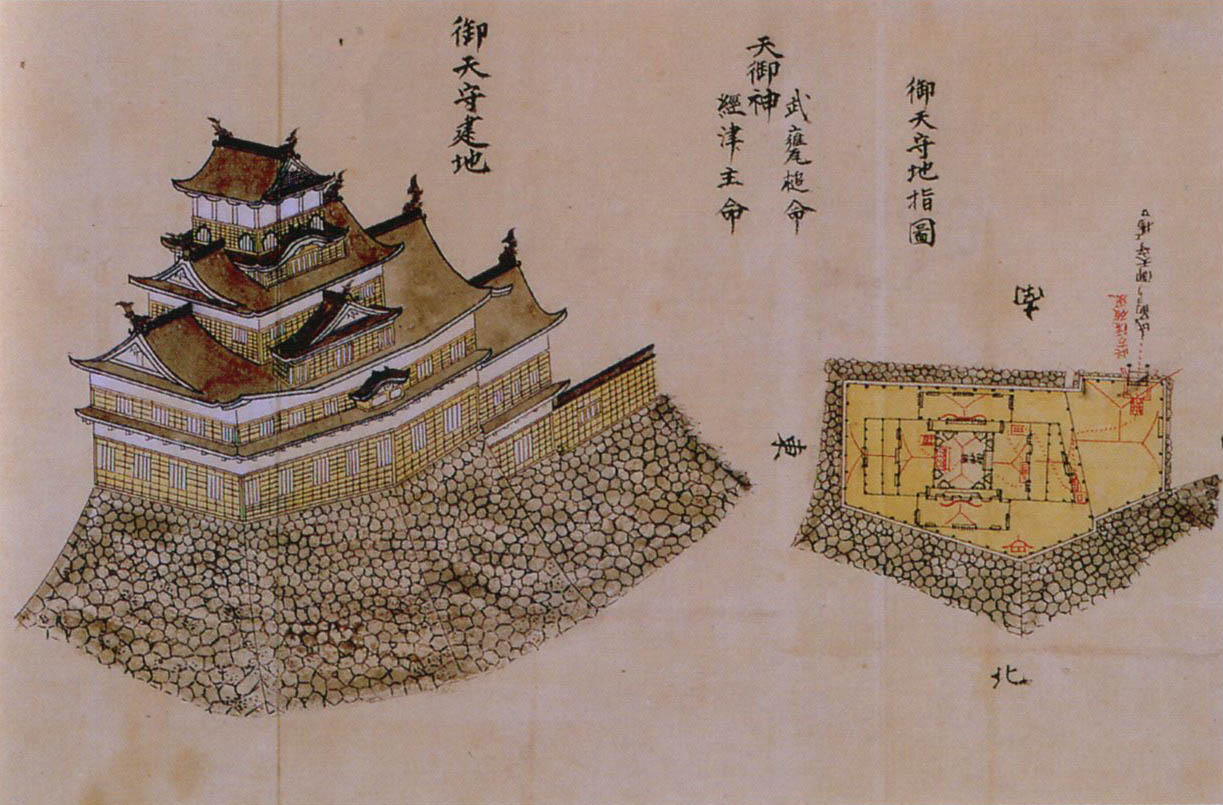 御天守地指圖
南
東
北
武甕槌命
天御神
經津主命
御天守建地